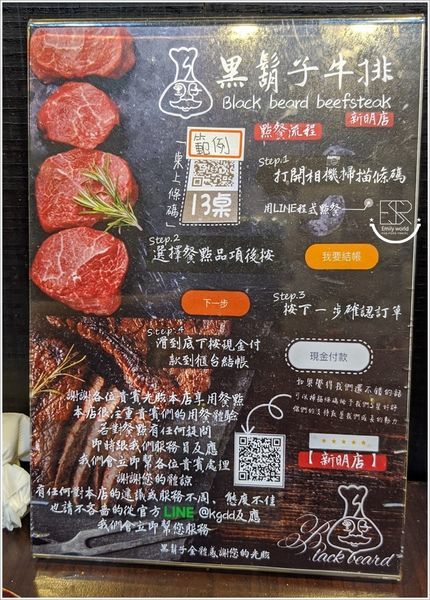 黑鬍子牛排
Black beard beefsteak
新明店
點餐流程
範例
桌上條碼
13桌
Step.1
打開相機掃描條碼
用LINE程式點餐
ESR
Emily world
Step.2
選擇餐點品項後按
我要結帳
下一步
Step.3
按下一步確認訂單
Step.4
滑到底下按現金付
款到櫃台結帳
現金付款
謝謝各位貴賓光臨本店享用餐點
本店很注重貴賓們的用餐體驗
若對餐點有任何疑問
即時跟我們服務員反應
我們會立即幫各位貴賓處理
謝謝您的體諒
有任何對本店的建議或服務不周、態度不佳
也請不吝嗇的從官方LINE @kgdd反應
我們會立即幫您服務
黑鬍子全體感謝您的光臨
如果覺得我們還不錯的話
可以掃描條碼給予我們5星好評
您們的支持就是我們成長的動力
★★★★★
【新明店】
Black beard